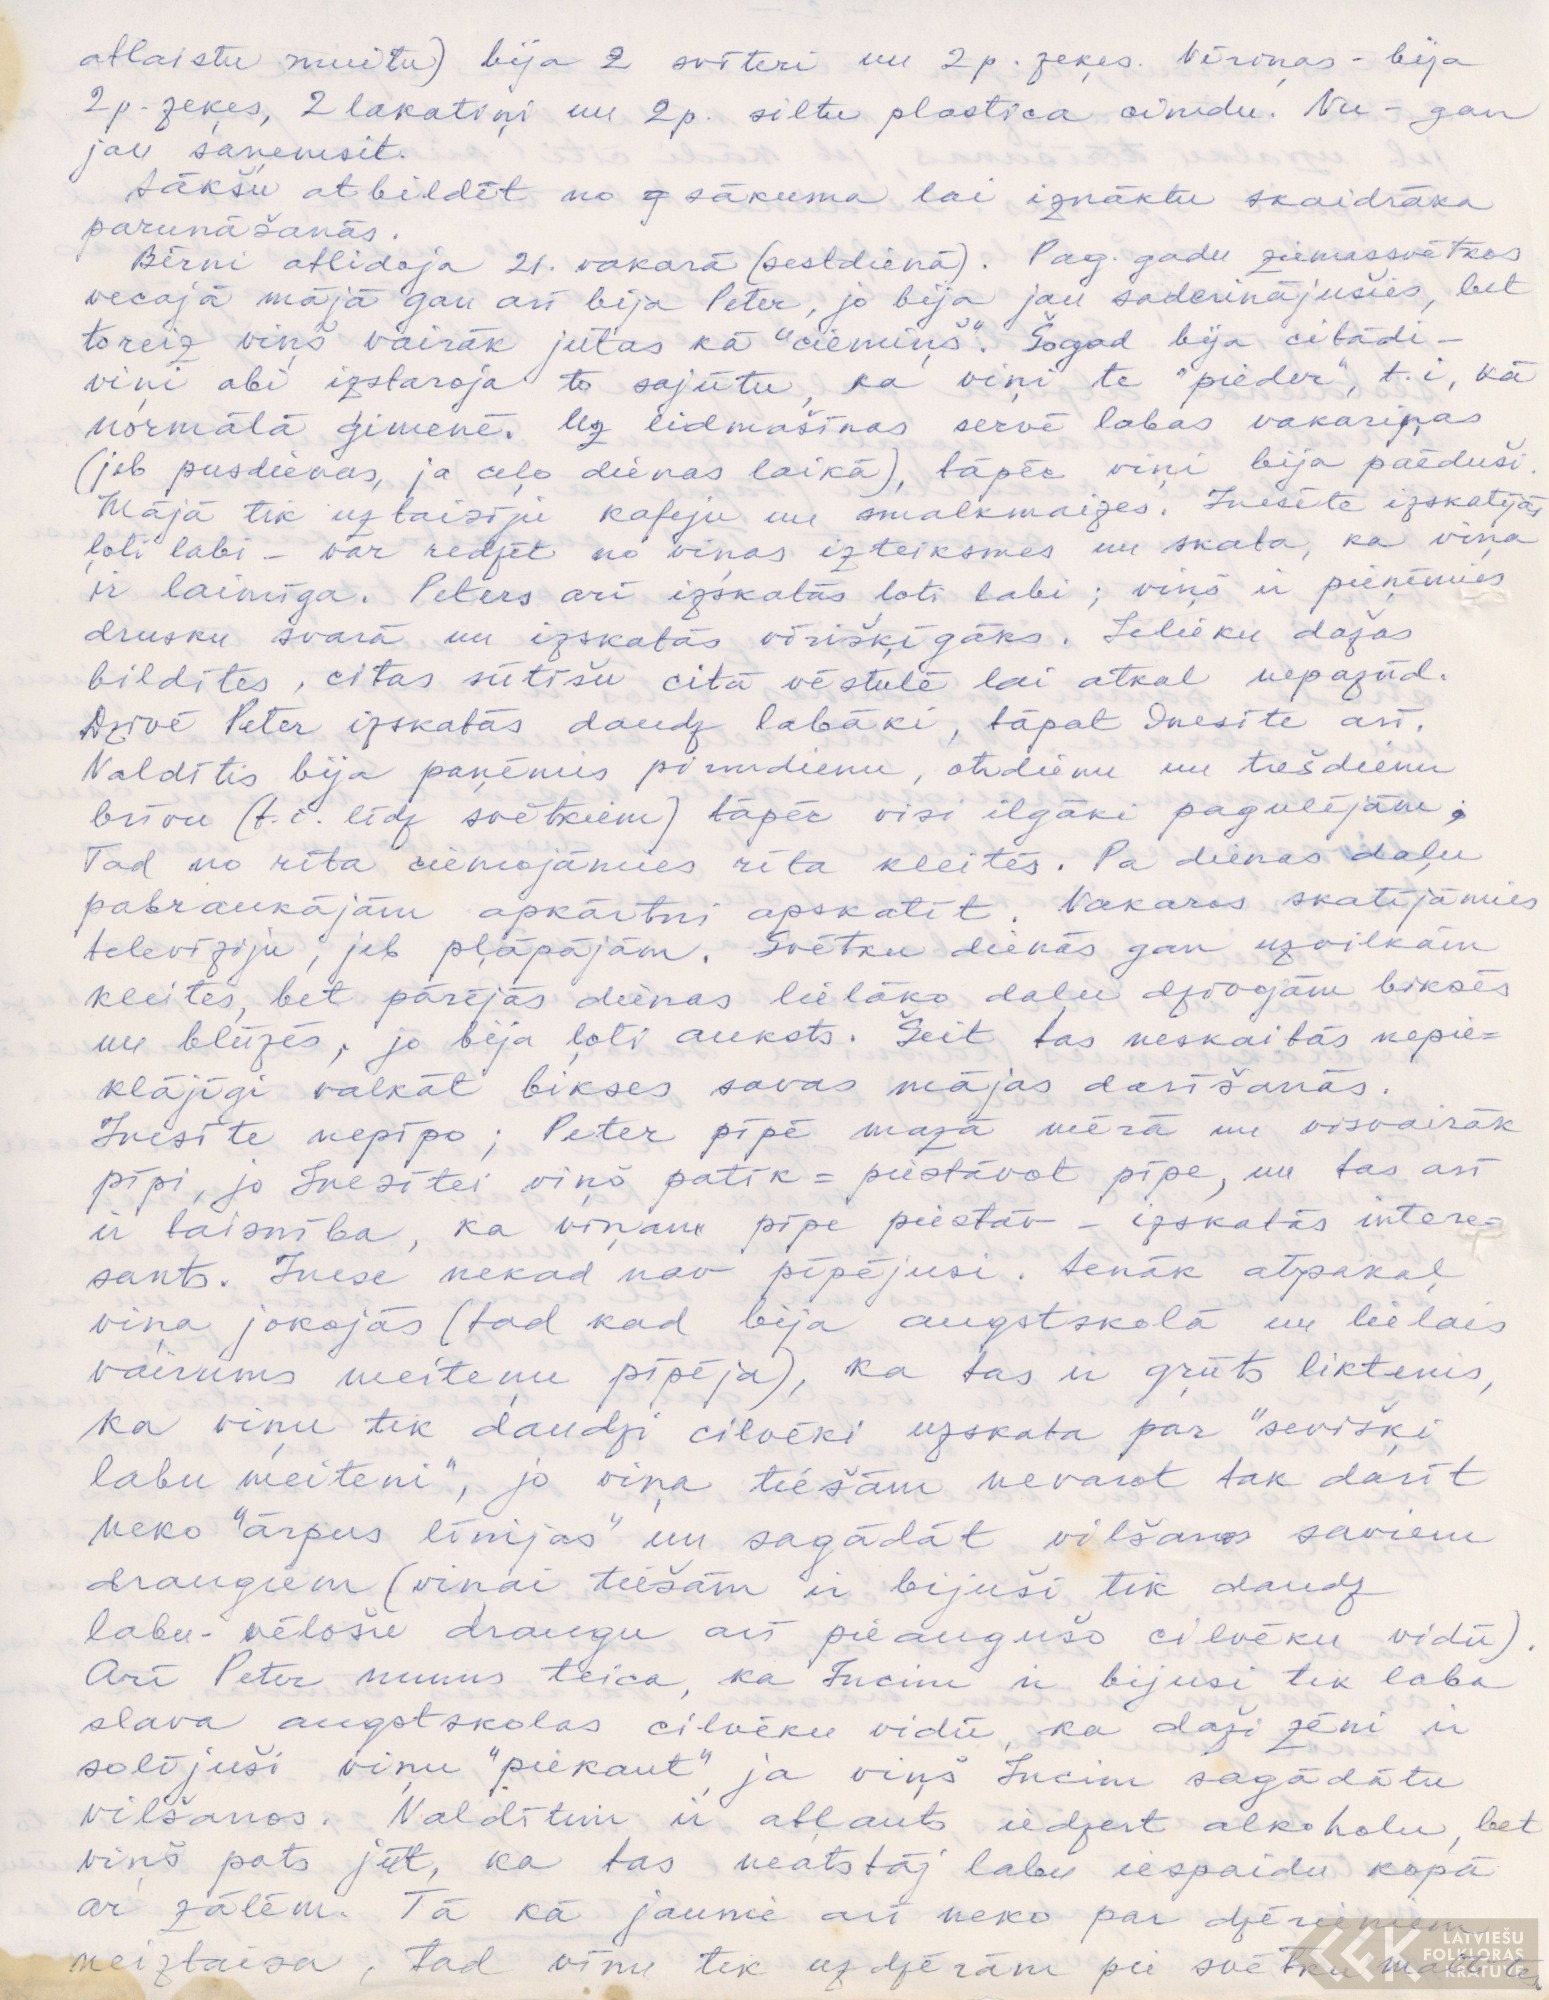 atlaistu muitu) bija 2 svīteri un 2 p. zeķes. Vēroņas - bija
2 p. zeķes, 2 lakatiņi un 2 p. siltu plastica cimdu. Nu - gan
jau saņemsit.
Sākšu atbildēt no sākuma lai iznāktu skaidrāka
parunāšanās.
Bērni atlidoja 21. vakarā (sestdienā). Pag. gadu ziemassvētkos
vecajā mājā gan arī bija Peter, jo bija jau saderinājušies, bet
toreiz viņš vairāk jūtas kā "ciemiņš". Šogad bija citādi -
viņi abi izstaroja to sajūtu, ka viņi te "pieder", t.i, kā
normālā ģimenē. Uz lidmašīnas servē labas vakariņas
(jeb pusdienas, ja ceļo dienas laikā), tāpēc viņi bija paēduši.
Mājā tik uztaisīju kafeju un smalkmaizes. Inesīte izskatījās
ļoti labi - var redzēt no viņas izteiksmes un skata, ka viņa
ir laimīga. Peters arī izskatās ļoti labi; viņš ir pieņēmies
drusku svarā un izskatās vīrišķīgāks. Ielieku dažas
bildītes, citas sūtīšu citā vēstulē lai atkal nepazūd.
Dzīvē Peter izskatās daudz labāki, tāpat Inesīte arī.
Valdītis bija paņēmis pirmdienu, otrdienu un trešdienu
brīvu (t.i. līdz svētkiem) tāpēc visi ilgāki pagulējām.
Tad no rīta ciemojāmies rīta kleitēs. Pa dienas daļu
pabraukājām apkārtni apskatīt. Vakaros skatījāmies
televīziju, jeb pļāpājām. Svētku dienās gan uzvilkām
kleites, bet pārējās dienas lielāko daļu dzīvojām biksēs
un blūzēs, jo bija ļoti auksts. Šeit tas neskaitās nepie=
klājīgi valkāt bikses savas mājas darīšanās.
Inesīte nepīpo; Peter pīpē mazā mērā un visvairāk
pīpi, jo Inesītei viņš patīk = piestāvot pīpe, un tas arī
ir taisnība, ka viņam pīpe piestāv - izskatās intere=
sants. Inese nekad nav pīpējusi. Senāk atpakaļ
viņa jokojās (tad kad bija augstskolā un lielais
vairums meiteņu pīpēja), ka tas ir grūts liktenis,
ka viņu tik daudzi cilvēki uzskata par "sevišķi
labu meiteni", jo viņa tiešām nevarot tak darīt
neko "ārpus līnijas" un sagādāt vilšanos saviem
draugiem (viņai tiešām ir bijuši tik daudz
labu-vēlošu draugu arī pieaugušo cilvēku vidū).
Arī Peter mums teica, ka Incim ir bijusi tik laba
slava augstskolas cilvēku vidū, ka daži zēni ir
solījuši viņu "piekaut", ja viņš Incim sagādātu
vilšanos. Valdītim ir atļauts iedzert alkoholu, bet
viņš pats jūt, ka tas neatstāj labu iespaidu kopā
ar zālēm. Tā kā jaunie arī neko par dzērieniem
neiztaisa, tad vīnu tik uzdzērām pie svētku maltītes
LATVIEŠU
FOLKLORAS
KRĀTUVE